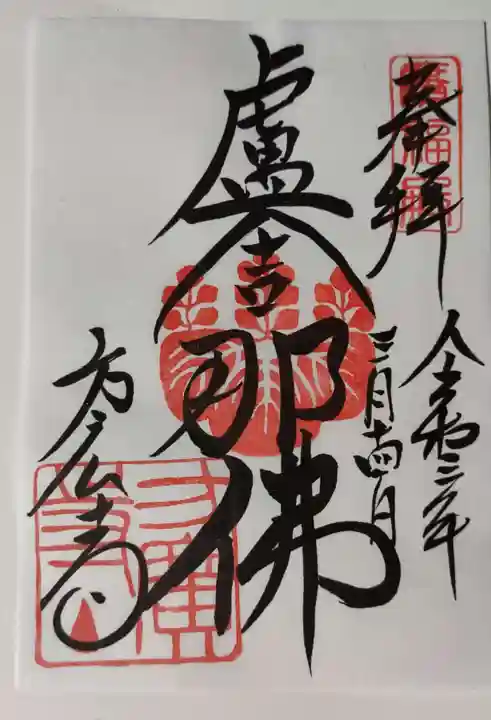 奉拝
令和二年
三月十四日
盧舎那佛
方広寺